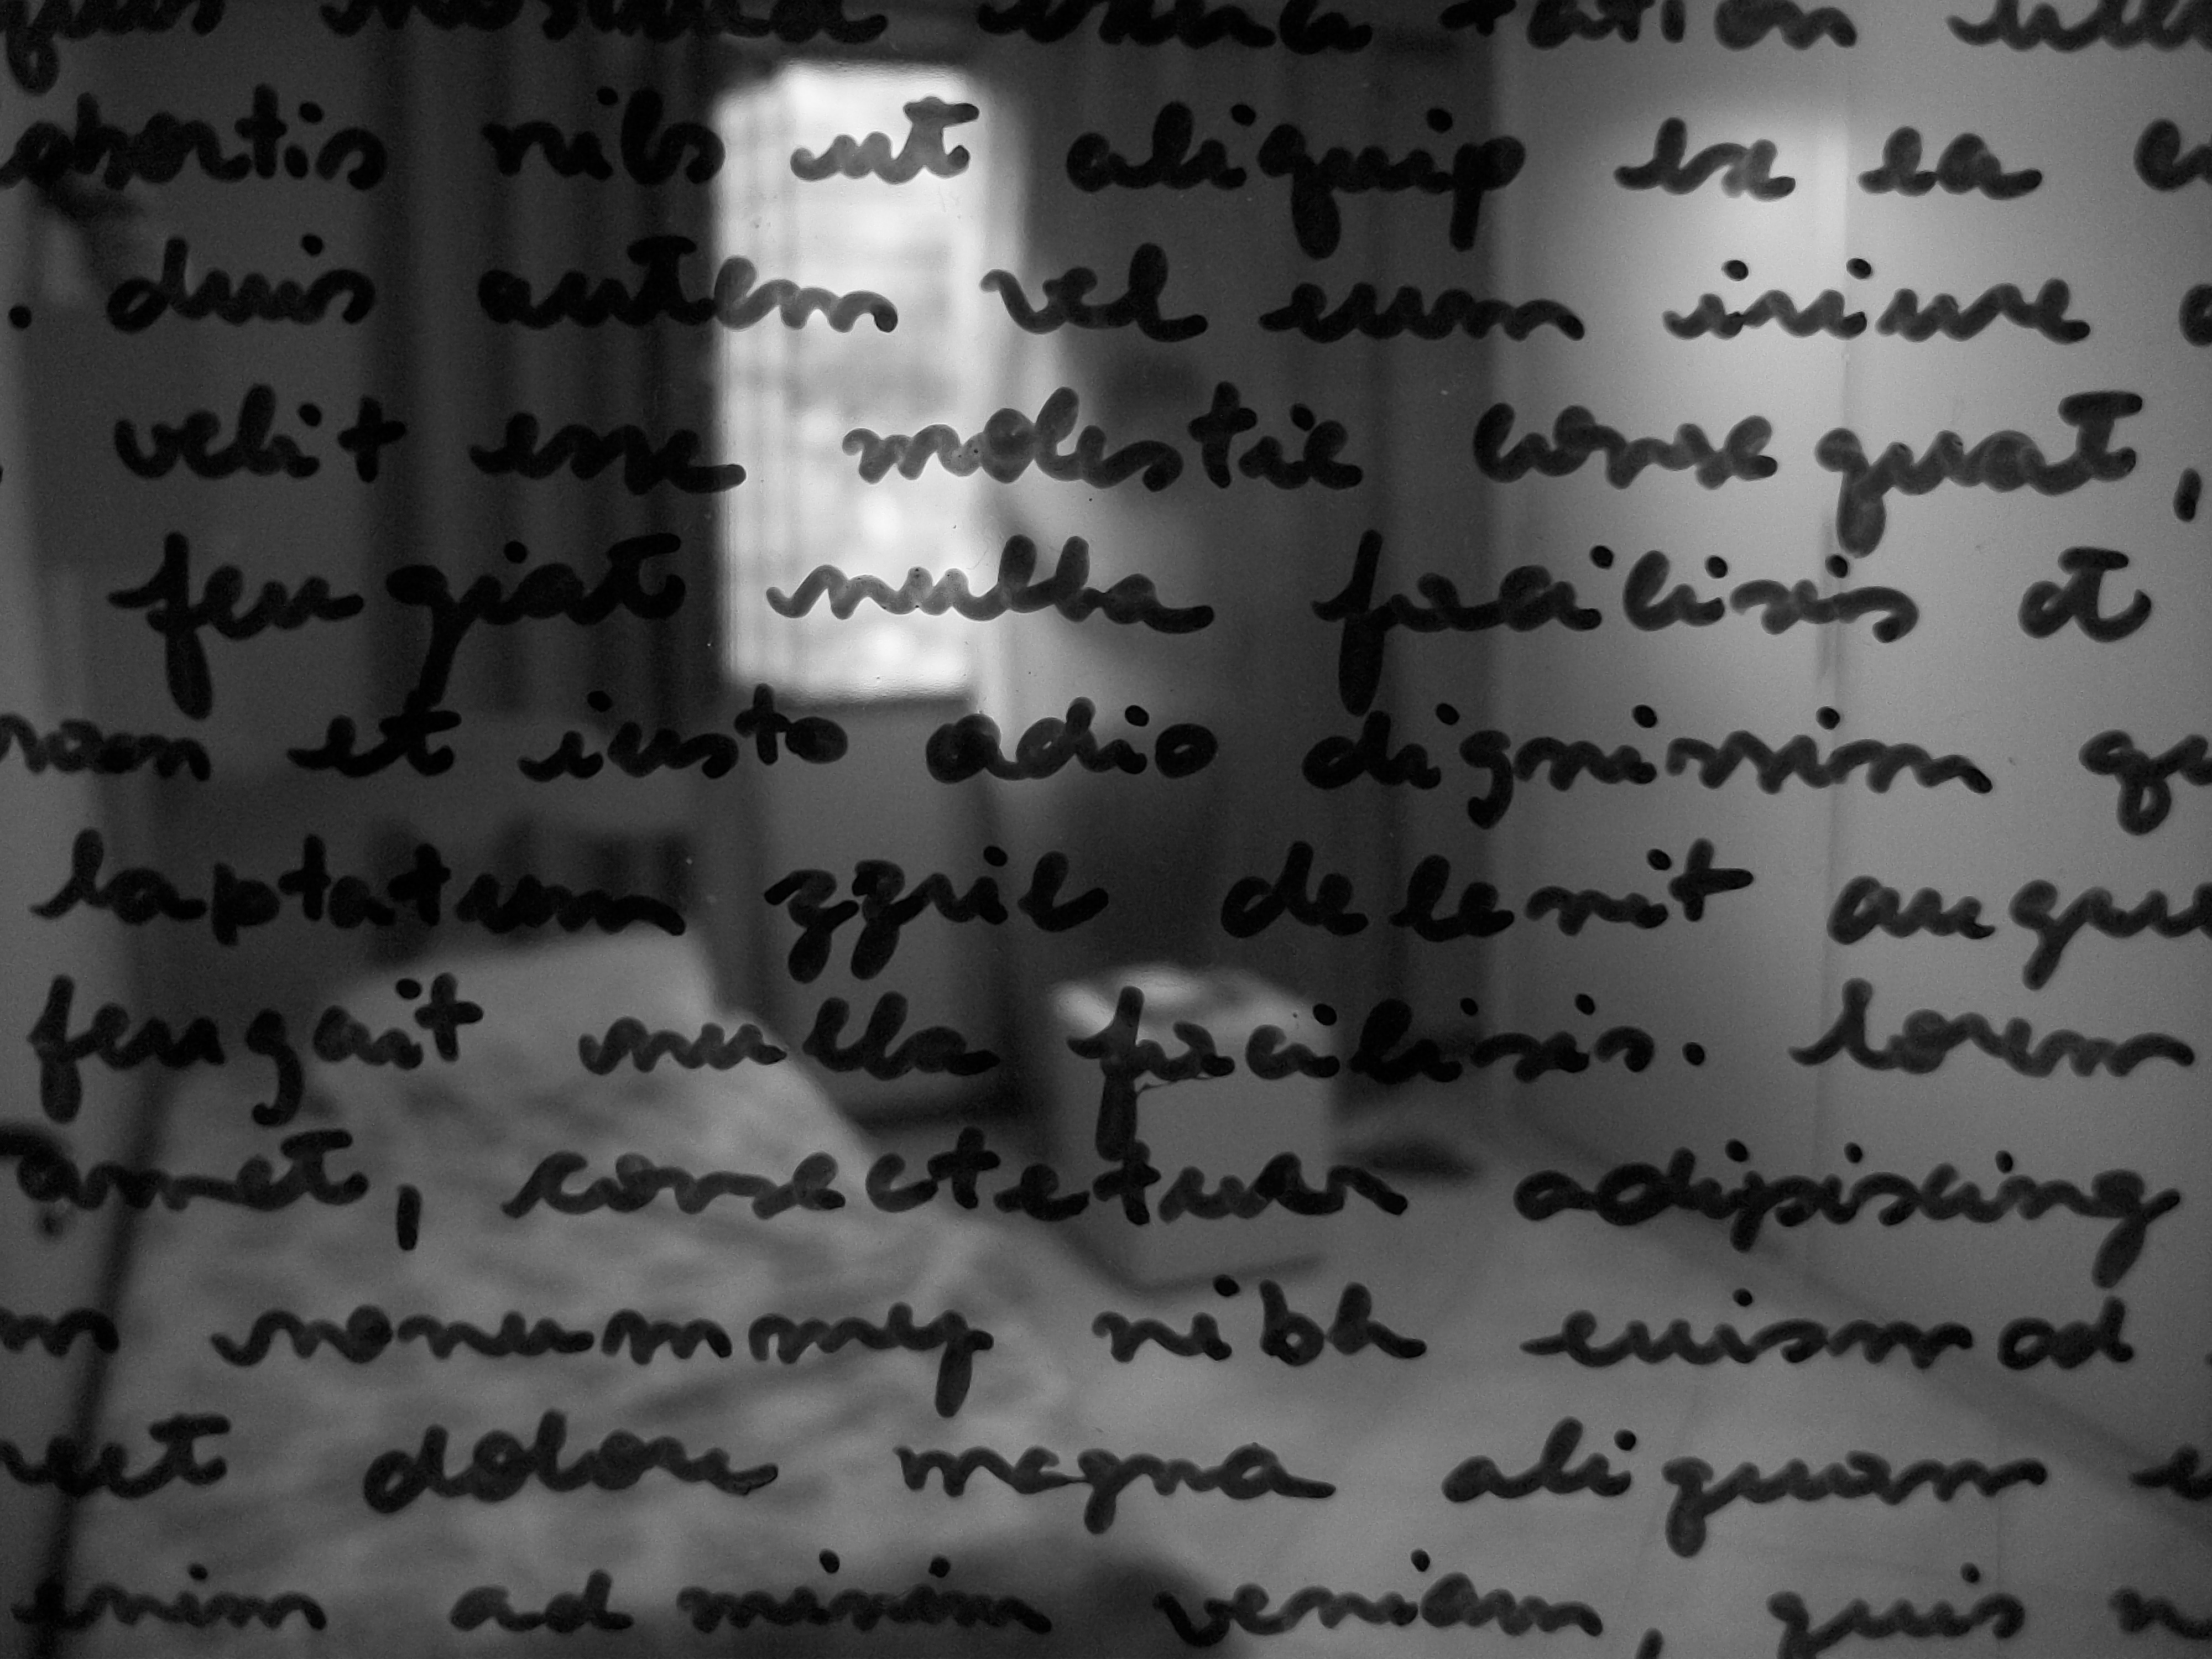 quis nostrud exerci tation ull
obortis nils ut aliquip ex ea co
. duis autem vel eum iriure d
velit esse molestie consequat,
feugiat nulla facilisis et
msan et iusto odio dignissim qu
luptatum zzril delenit augue
feugait nulla facilisis. lorem
amet, consectetuer adipiscing
m nonummy nibh euismod
reet dolore magna aliquam e
enim ad minim veniam, quis n